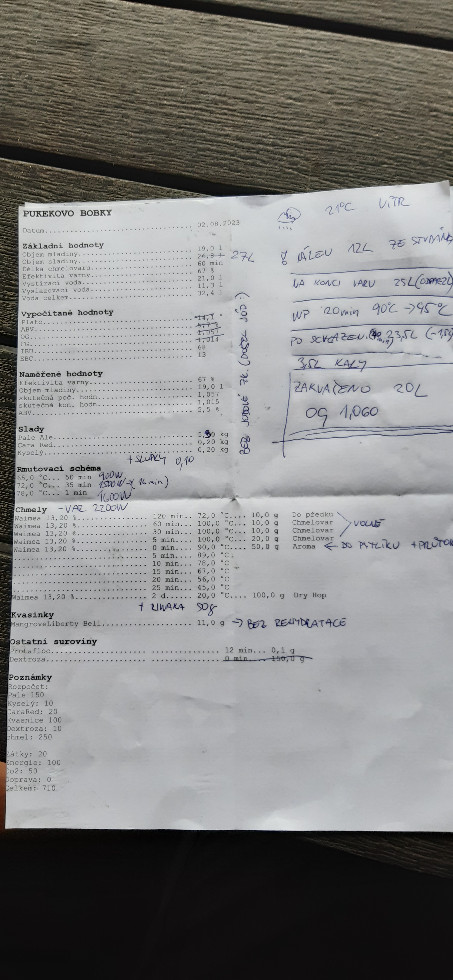 PUKEKOVO BOBKY
21°C VÍTR
Datum 02.08.2023
Základní hodnoty
Objem mladiny 19,0 l
Objem sladiny 26,8 l 27L
Délka chmelovaru 60 min
Efektivita varny 67 %
Vystírací voda 21,0 l
Vyslazovací voda 11,0 l
Voda celkem 32,4 l
12L ZE STUDÁNKY
NA KONCI VARU 25L
WP 20min 90°C → 95°C
PO SCHLAZENÍ 23,5L
3,5L KALY
ZAKVAŠENO 20L
OG 1,060
Vypočítané hodnoty
Plato
ABV
OG 1,057
FG 1,014
IBU 60
EBC 13
BEZ JODOVÉ ZK.
Naměřené hodnoty
Efektivita varny 67 %
Objem mladiny 19,0 l
Skutečná poč. hodn. 1,057
Skutečná kon. hodn. 1,015
ABV
Slady
Pale Ale kg
Cara Red 0,20 kg
Kyselý 0,20 kg
+ SLUPKY 0,10
Rmutovací schéma
65,0 °C... 50 min 900W
72,0 °C... 35 min
78,0 °C... 1 min 1600W
Chmely - VAR 2200W
Waimea 13,20 % 120 min.. 72,0 °C.... 10,0 g Do předku
Waimea 13,20 % 60 min... 100,0 °C... 10,0 g Chmelovar
Waimea 13,20 % 30 min... 100,0 °C... 10,0 g Chmelovar
Waimea 13,20 % 5 min... 100,0 °C... 20,0 g Chmelovar
Waimea 13,20 % 0 min... 90,0 °C... 50,0 g Aroma ← DO PYTLÍKU
VOLNĚ
5 min... 89,0 °C
10 min... 78,0 °C
15 min... 67,0 °C
20 min... 56,0 °C
25 min... 45,0 °C
Waimea 13,20 % 2 d.... 20,0 °C.... 100,0 g Dry Hop
+ RIWAKA 50g
Kvasinky
11,0 g → BEZ REHYDRATACE
Ostatní suroviny
12 min... 0,1 g
Dextroza 0 min... 150,0 g
Poznámky
Rozpočet:
Pale 150
Kyselý: 10
CaraRed: 20
Kvasnice 100
Dextroza: 10
Chmel: 250
Látky: 20
Energie: 100
Co2: 50
Doprava: 0
Celkem: 710